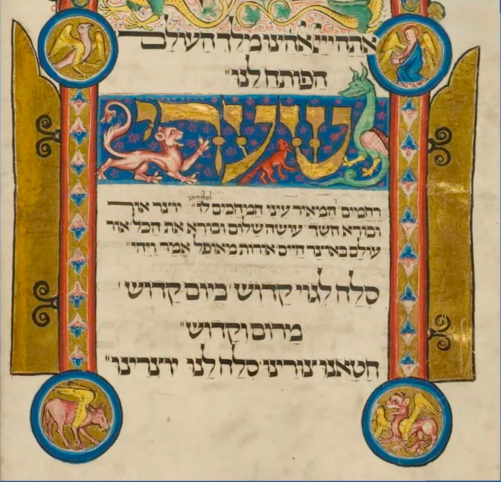 אתה ייי אלהינו מלך העולם
הפותח לנו
שערי
רחמים המאיר עיני המחכים יוצר אור
ובורא חשך עושה שלום ובורא את הכל אור
עולם באוצר חיים אורות מאופל אמר ויהי
סלח לגוי קדוש ביום קדוש
מרום וקדוש
חטאנו צורינו סלח לנו יוצרינו